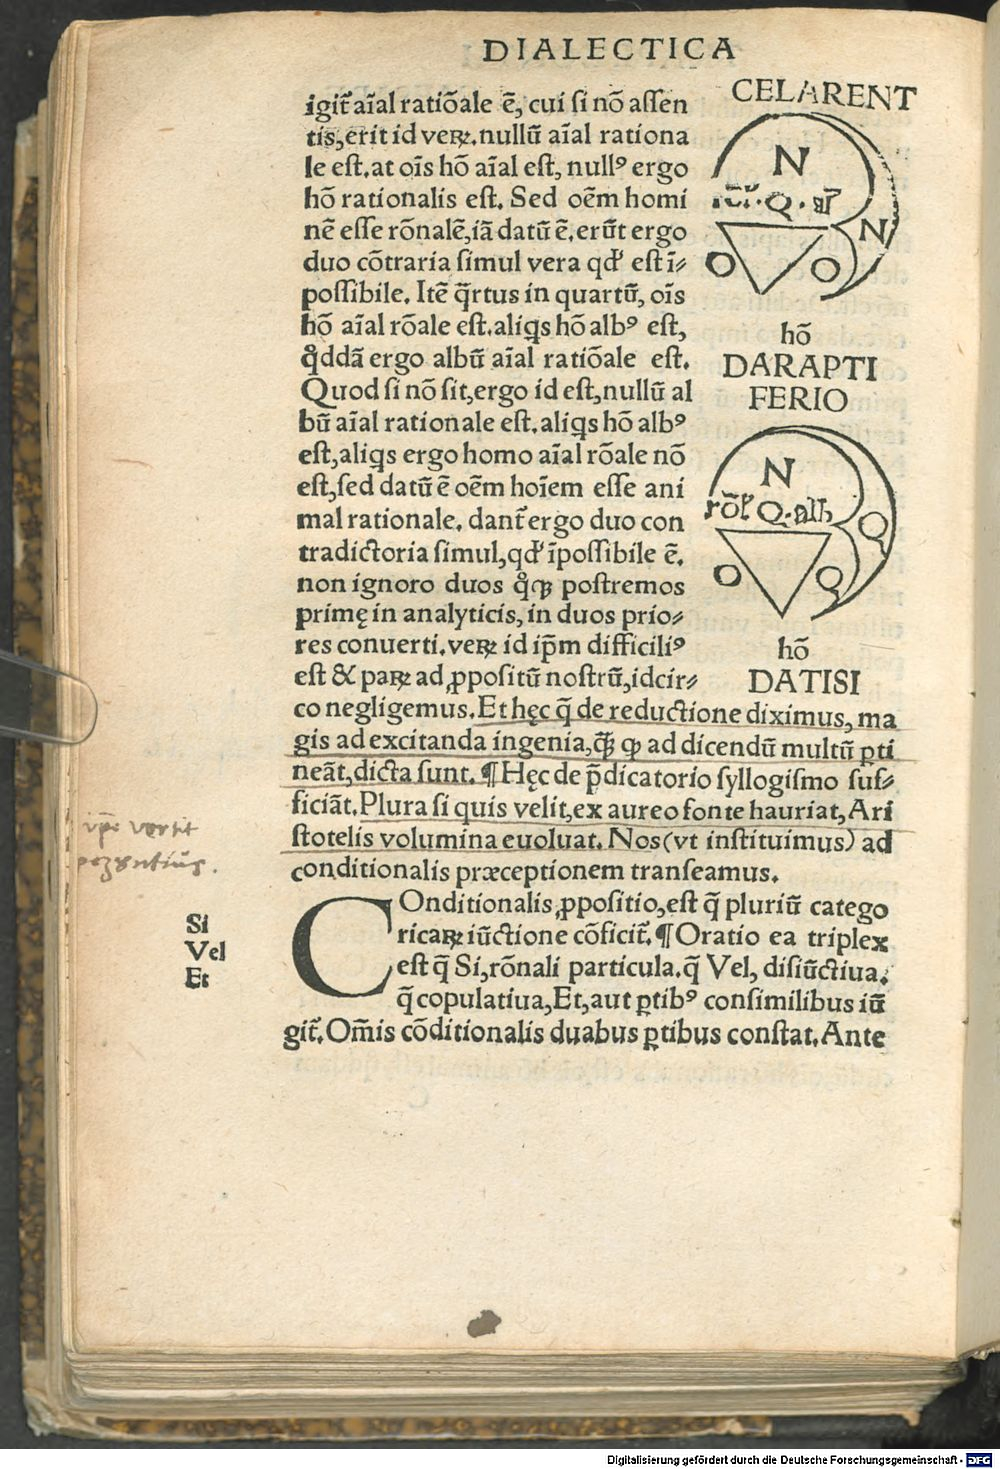 DIALECTICA
igit̃ aĩal ratiõale ẽ, cui si nõ assen
tis, erit id veꝝ. nullũ aĩal rationa
le est. at oĩs hõ aĩal est, nullꝰ ergo
hõ rationalis est. Sed oẽm homi
nẽ esse rõnalẽ, iã datũ ẽ. erũt ergo
duo cõtraria simul vera qđ est ĩ⸗
possibile. Itẽ q̃rtus in quartũ, oĩs
hõ aĩal rõale est. aliq̃s hõ albꝰ est,
q̃ddã ergo albũ aĩal ratiõale est.
Quod si nõ sit, ergo id est, nullũ al
bũ aĩal rationale est. aliq̃s hõ albꝰ
est, aliq̃s ergo homo aĩal rõale nõ
est, sed datũ ẽ oẽm hoĩem esse ani
mal rationale. dant̃ ergo duo con
tradictoria simul, qđ ĩpossibile ẽ.
non ignoro duos postremos
primę in analyticis, in duos prio⸗
res conuerti. veꝝ id ip̃m difficiliꝰ
est & paꝝ ad ꝓpositũ nostrũ, idcir⸗
co negligemus. Et hęc q̃ de reductione diximus, ma
gis ad excitanda ingenia, ad dicendũ multũ ꝑti
neãt, dicta sunt. ¶ Hęc de p̃dicatorio syllogismo suf⸗
ficiãt. Plura si quis velit, ex aureo fonte hauriat, Ari
stotelis volumina euoluat. Nos (vt instituimus) ad
conditionalis præceptionem transeamus.
COnditionalis ꝓpositio, est q̃ pluriũ catego
ricaꝝ iũctione cõficit̃. ¶ Oratio ea triplex
est q̃ Si, rõnali particula. q̃ Vel, disiũctiua.
q̃ copulatiua, Et, aut ꝑtibꝰ consimilibus iũ
git̃. Om̃is cõditionalis duabus ꝑtibus constat. Ante
CELARENT
N
Q.
N
O O
hõ
DARAPTI
FERIO
N
Q. alb
Q
O Q
hõ
DATISI
vertit
Si
Vel
Et
Digitalisierung gefördert durch die Deutsche Forschungsgemeinschaft - DFG